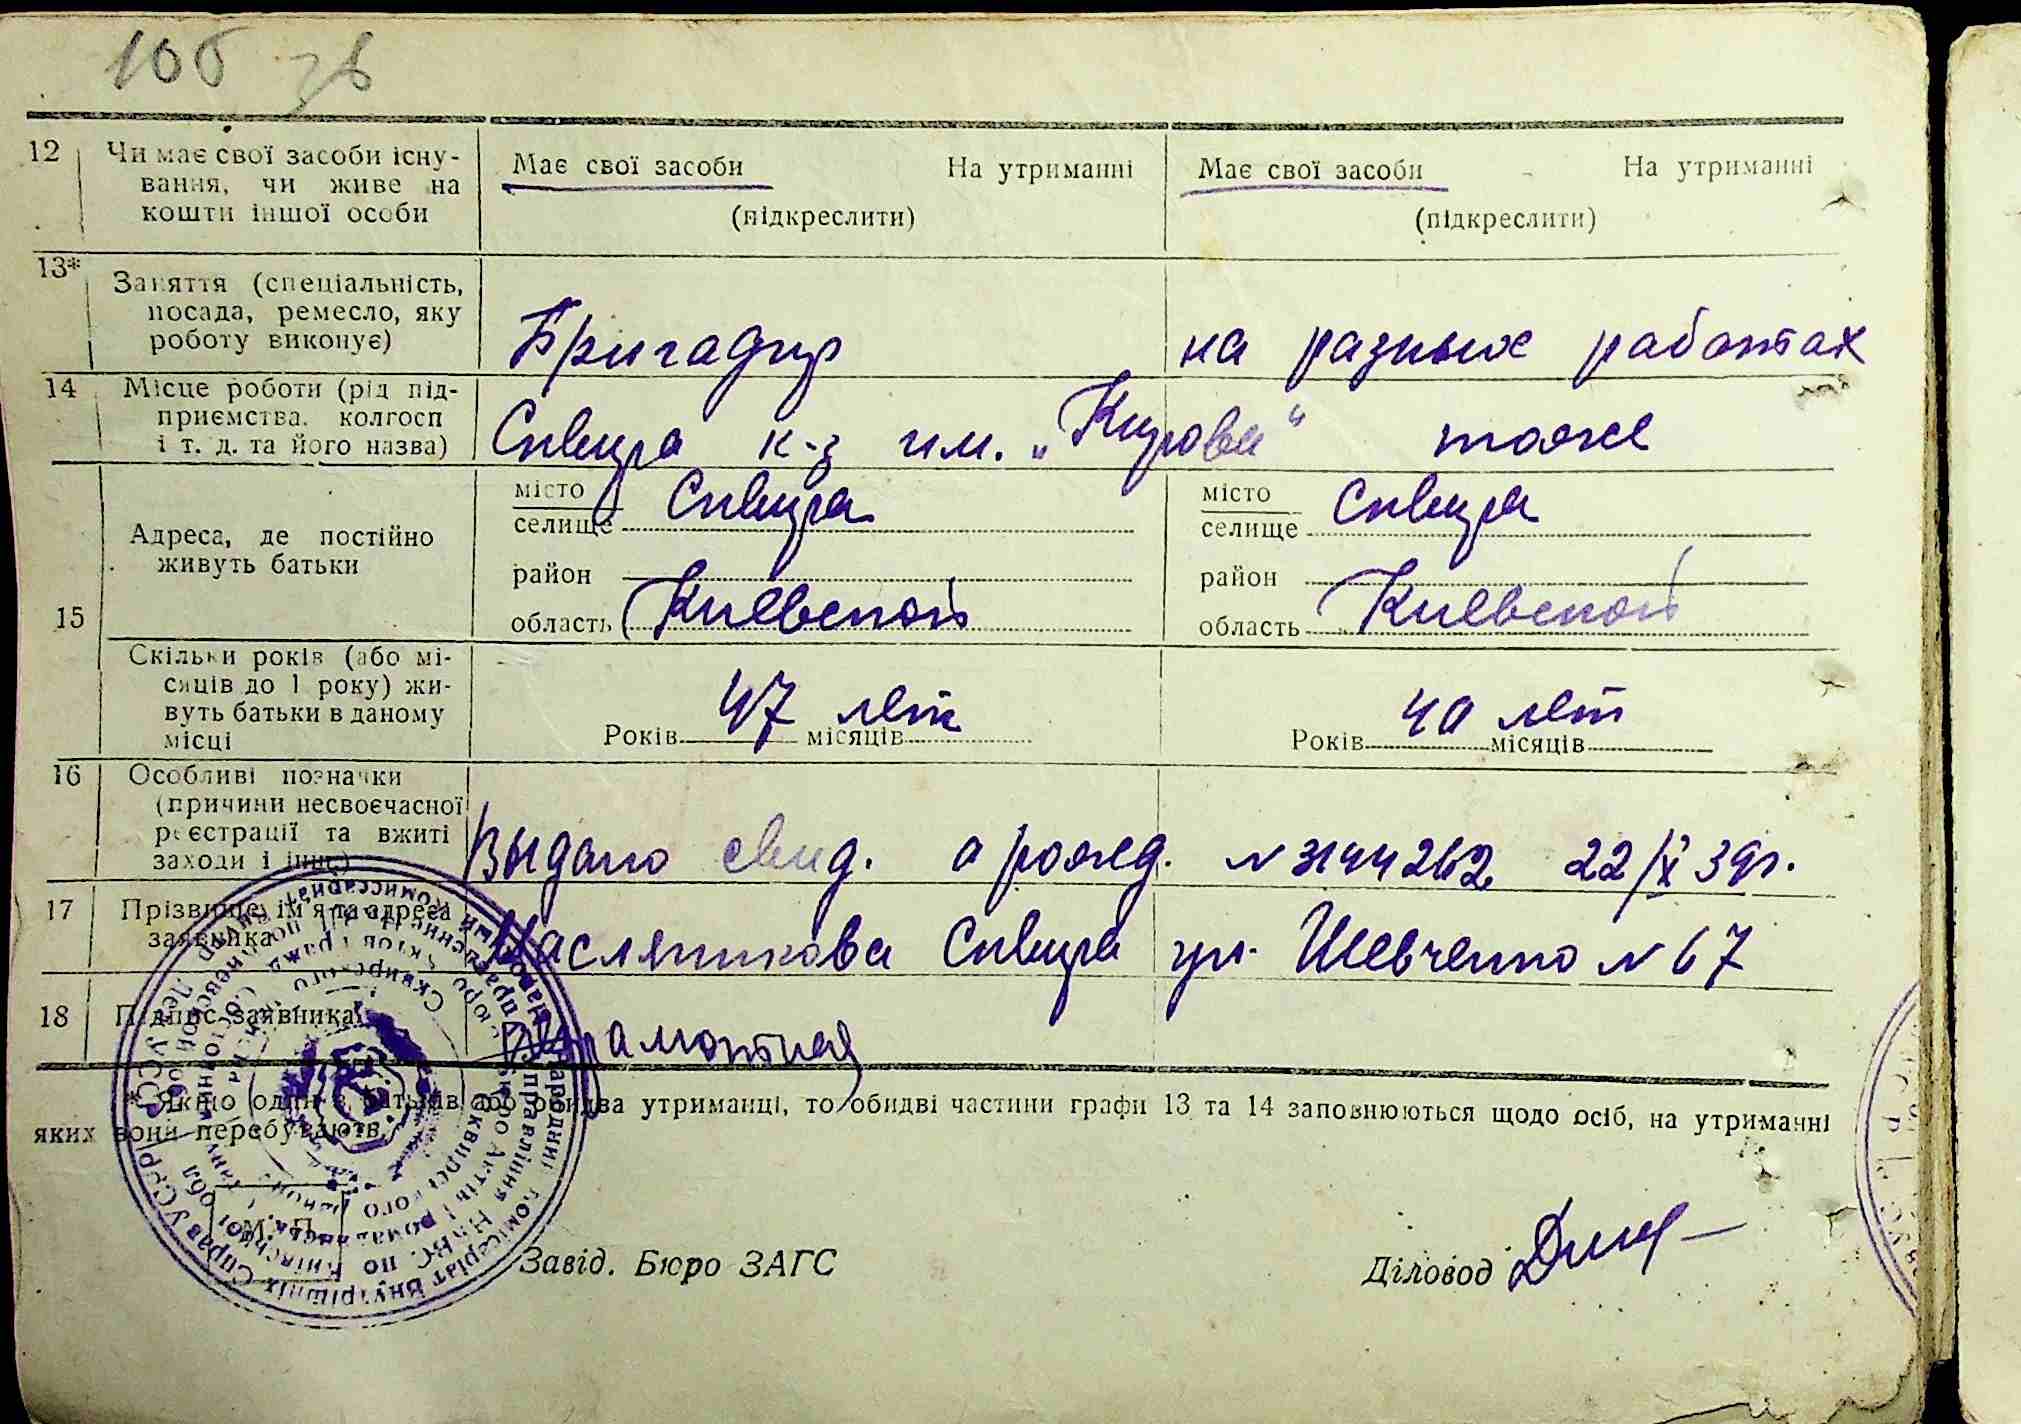 106 зв
12 Чи має свої засоби існу-
вання, чи живе на
кошти іншої особи
Має свої засоби На утриманні
(підкреслити)
Має свої засоби На утриманні
(підкреслити)
13* Заняття (спеціальність,
посада, ремесло, яку
роботу виконує)
Бригадир
на разных работах
14 Місце роботи (рід під-
приємства, колгосп
і т. д. та його назва)
Сквира к-з им. „Кирова“
тоже
15 Адреса, де постійно
живуть батьки
місто
селище Сквира
район
область Киевской
місто
селище Сквира
район
область Киевской
Скільки років (або мі-
сяців до 1 року) жи-
вуть батьки в даному
місці
Років 47 лет місяців
Років 40 лет місяців
16 Особливі позначки
(причини несвоєчасної
реєстрації та вжиті
заходи і інш.)
Выдано свид. о рожд. № 3144262 22/X 39г.
17 Прізвище, ім'я та адреса
заявника
Масляникова Сквира ул. Шевченко № 67
18 Підпис заявника
* Якщо один з батьків або обидва утриманці, то обидві частини графи 13 та 14 заповнюються щодо осіб, на утриманні
яких вони перебувають.
М. П.
Завід. Бюро ЗАГС
Діловод